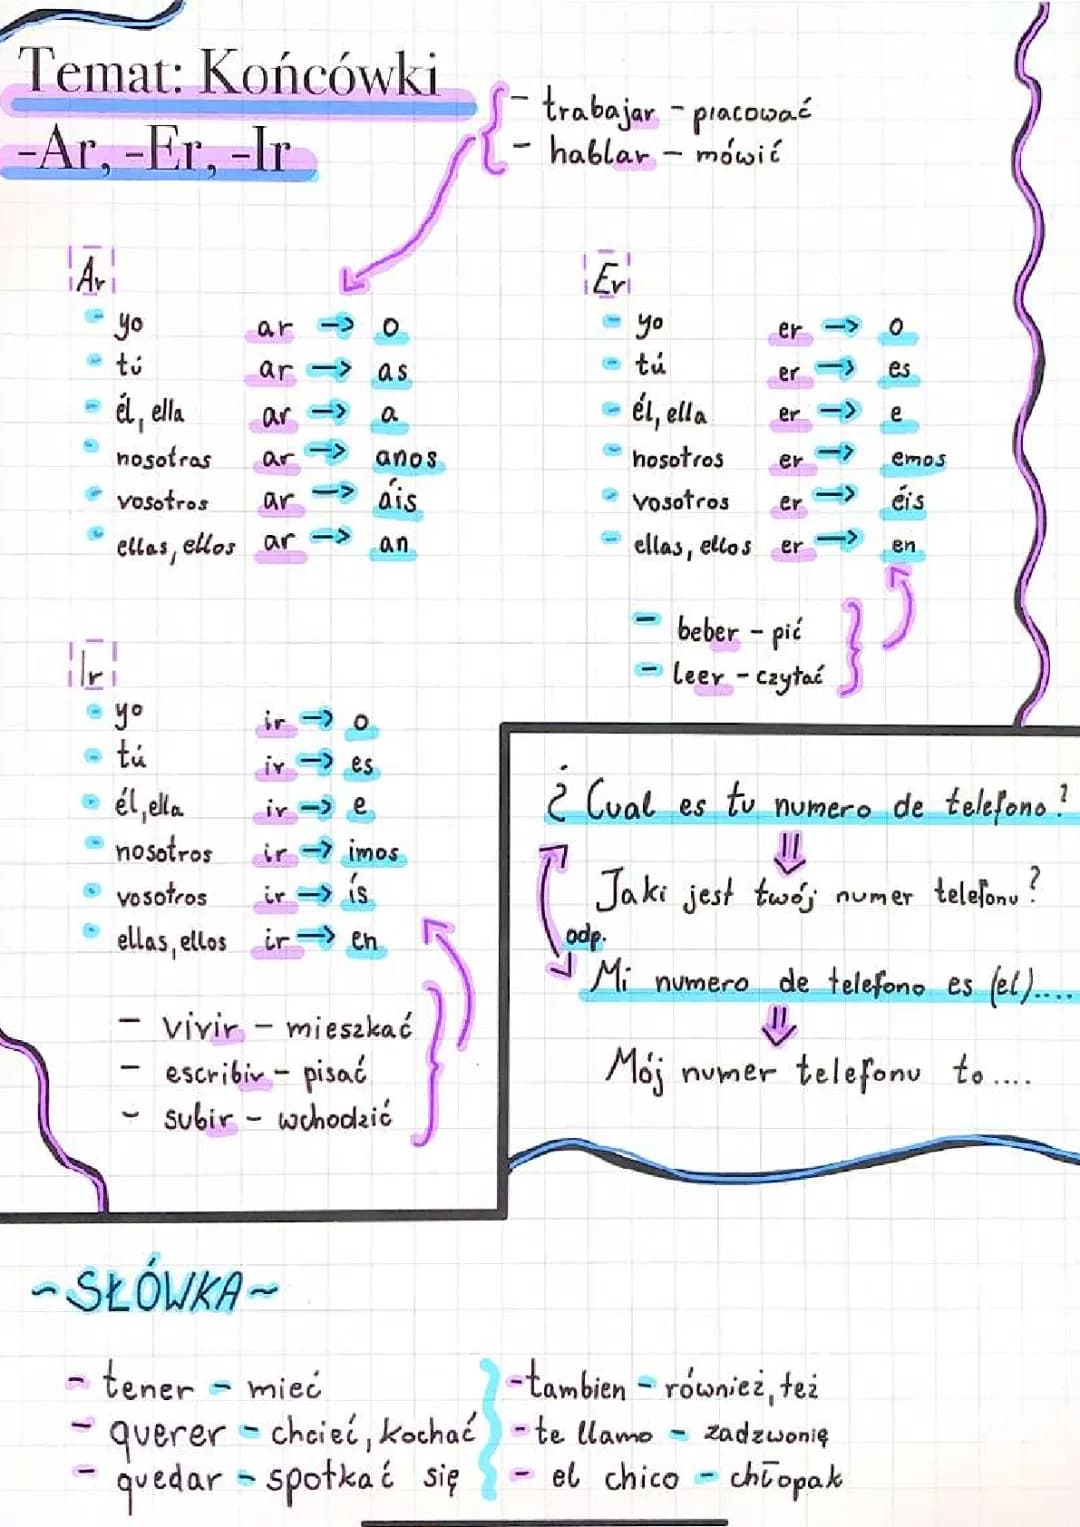 Temat: Końcówki
-Ar, -Er, -Ir
- trabajar - pracować
- hablar - mówić
Ar
yo ar -> o
tú ar -> as
él, ella ar -> a
nosotras ar -> anos
vosotros ar -> áis
ellas, ellos ar -> an
Er
yo er -> o
tú er -> es
él, ella er -> e
nosotros er -> emos
vosotros er -> éis
ellas, ellos er -> en
- beber - pić
- leer - czytać
Ir
yo ir -> o
tú ir -> es
él, ella ir -> e
nosotros ir -> imos
vosotros ir -> ís
ellas, ellos ir -> en
- vivir - mieszkać
- escribir - pisać
- subir - wchodzić
¿Cual es tu numero de telefono?
Jaki jest twój numer telefonu?
odp.
Mi numero de telefono es (el)....
Mój numer telefonu to....
~SŁÓWKA~
- tener - mieć
- querer - chcieć, kochać
- quedar - spotkać się
- tambien - również, też
- te llamo - zadzwonię
- el chico - chłopak